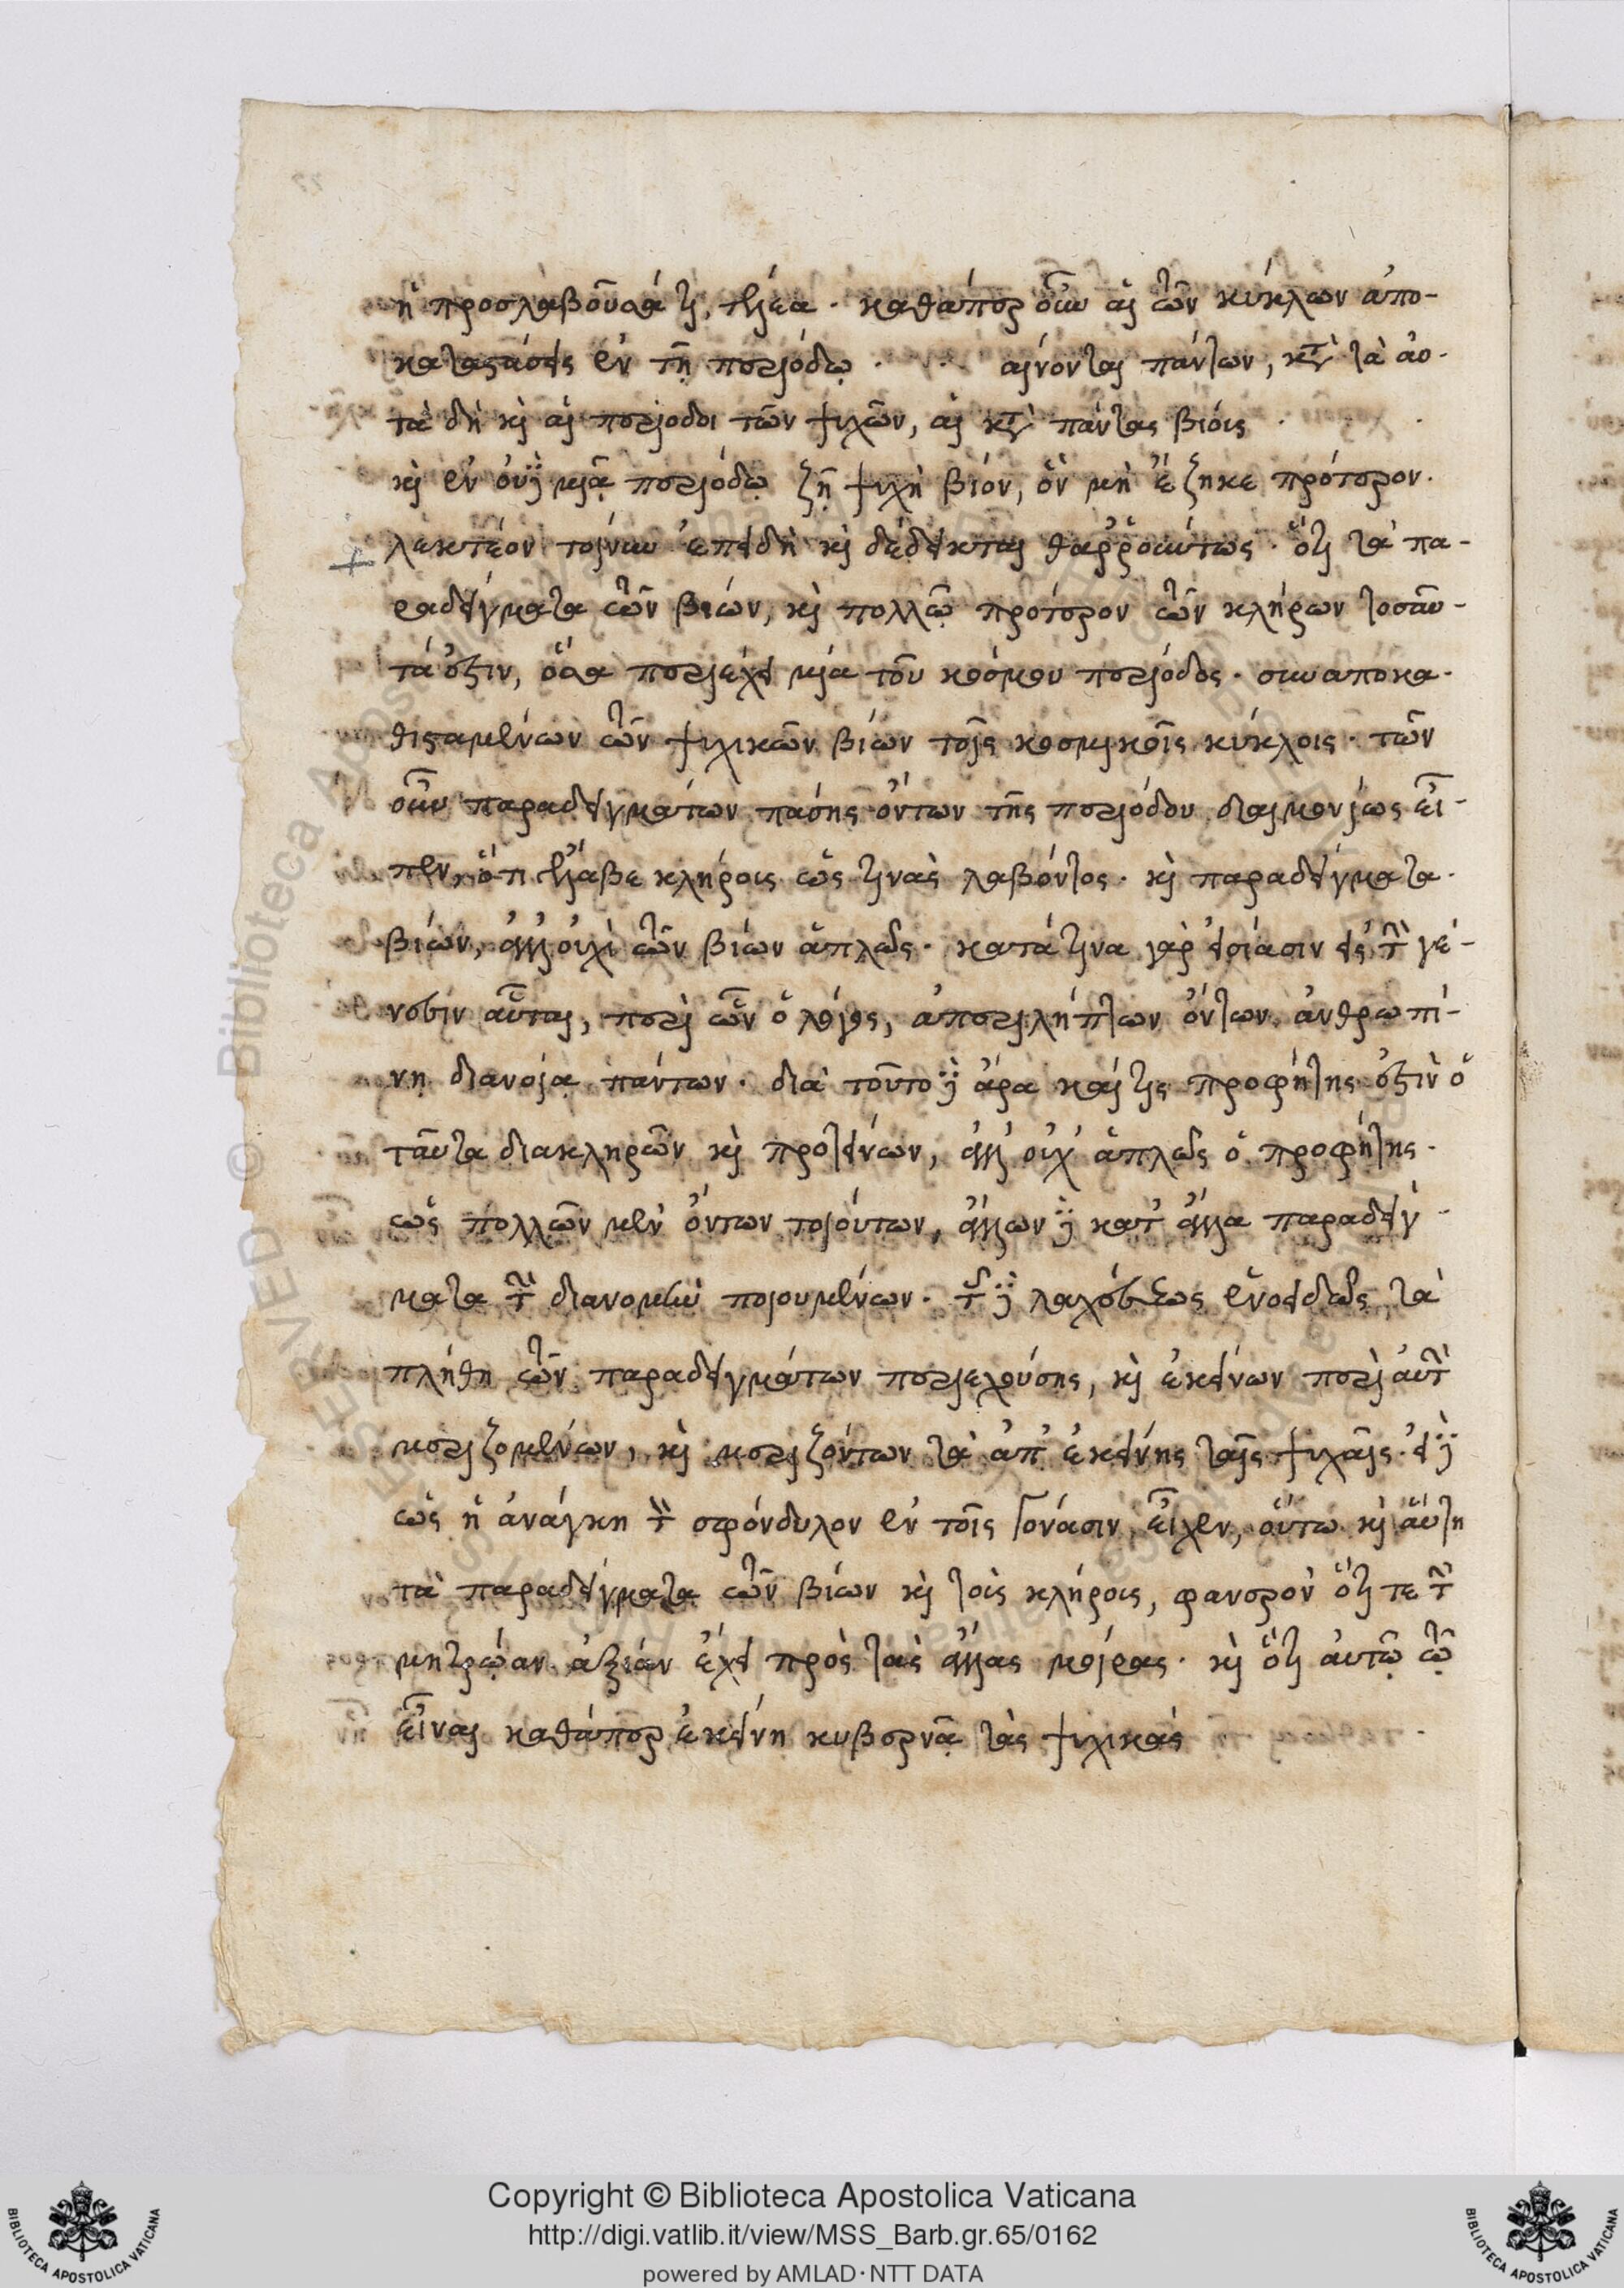 ἢ προσλαβοῦσά τι, τελέα· καθάπερ οὖν αἱ τῶν κύκλων ἀπο-
καταστάσεις ἐν τῇ περιόδῳ · αίνονται πάντων, κατὰ τὰ αὐ-
τὰ δὴ καὶ αἱ περίοδοι τῶν ψυχῶν, αἱ κατὰ πάντας βίους ·
καὶ ἐν οὐδεμιᾷ περιόδῳ ζῇ ψυχὴ βίον, ὃν μὴ ἔζηκε πρότερον.
λεκτέον τοίνυν ἐπειδὴ καὶ δέδεικται θαῤῥούντως· ὅτι τὰ πα-
ραδείγματα τῶν βίων, καὶ πολλῷ πρότερον τῶν κλήρων τοσαῦ-
τά ἐστιν, ὅσα περιέχει μία τοῦ κόσμου περίοδος· συναποκα-
θισταμένων τῶν ψυχικῶν βίων τοῖς κοσμικοῖς κύκλοις· τῶν
οὖν παραδειγμάτων πάσης ὄντων τῆς περιόδου, δαιμονίως εἶ-
πεν, ὅτι ἔλαβε κλήρους ὥς τινὰς λαβόντος· καὶ παραδείγματα
βίων, ἀλλ' οὐχὶ τῶν βίων ἁπλῶς· κατά τινα γὰρ εἰσίασιν εἰς τὴν γέ-
νεσιν αὗται, περὶ ὧν ὁ λόγος, ἀπεριλήπτων ὄντων ἀνθρωπί-
νῃ διανοίᾳ πάντων· διὰ τοῦτο δὲ ἄρα καί τις προφήτης ἐστὶν ὁ
ταῦτα διακληρῶν καὶ προτείνων, ἀλλ' οὐχ' ἁπλῶς ὁ προφήτης·
ὡς πολλῶν μὲν ὄντων τοιούτων, ἄλλων δὲ κατ' ἄλλα παραδείγ-
ματα τὴν διανομὴν ποιουμένων· τῆς δὲ λαχέσεως ἑνοειδῶς τὰ
πλήθη τῶν παραδειγμάτων περιεχούσης, καὶ ἐκείνων περὶ αὐτὴν
μεριζομένων, καὶ μεριζόντων τὰ ἀπ' ἐκείνης ταῖς ψυχαῖς· εἰ δὲ
ὡς ἡ ἀνάγκη τὸν σφόνδυλον ἐν τοῖς γόνασιν εἶχεν, οὕτω καὶ αὕτη
τὰ παραδείγματα τῶν βίων καὶ τοὺς κλήρους, φανερὸν ὅτι τε τὴν
μητρῴαν ἀξίαν ἔχει πρὸς τὰς ἄλλας μοίρας· καὶ ὅτι αὐτῷ τῷ
εἶναι καθάπερ ἐκείνη κυβερνᾷ τὰς ψυχικάς
Copyright © Biblioteca Apostolica Vaticana
http://digi.vatlib.it/view/MSS_Barb.gr.65/0162
powered by AMLAD·NTT DATA